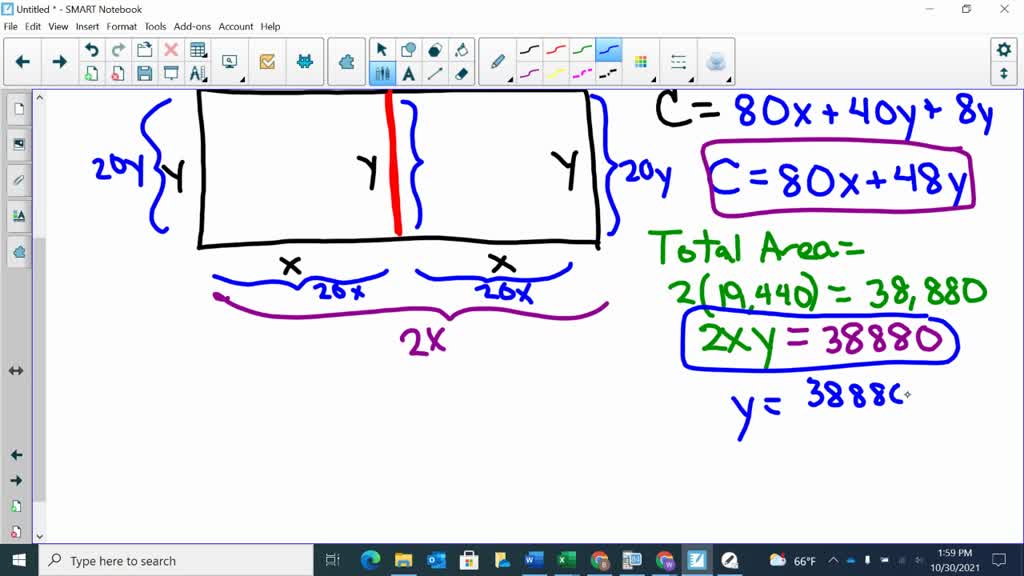 Untitled * - SMART Notebook
File Edit View Insert Format Tools Add-ons Account Help
C = 80x + 40y + 8y
20y y y y 20y
C = 80x + 48y
Total Area =
x x
20x 20x
2(19,440) = 38,880
2x
2xy = 38880
y = 3888
Type here to search
66°F
1:59 PM
10/30/2021